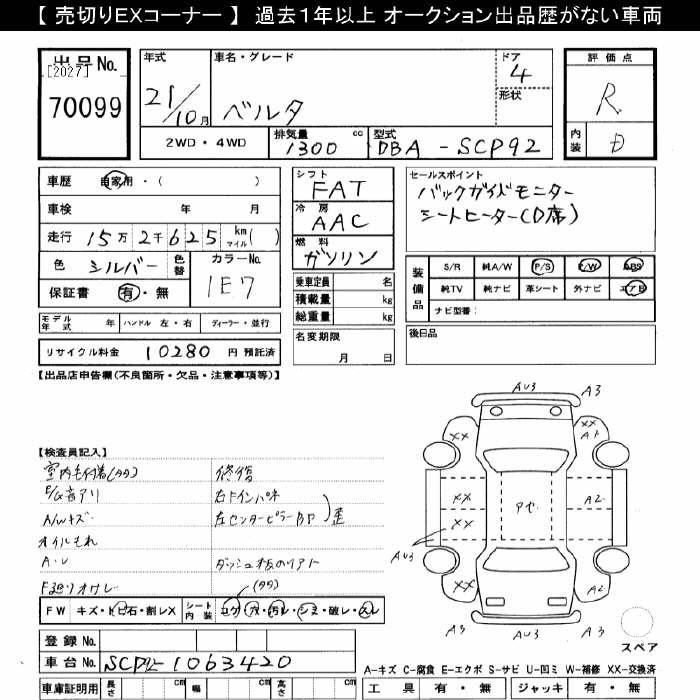 【 売切りEXコーナー 】 過去1年以上 オークション出品歴がない車両
出品No.
[2027]
70099
年式
21/10月
車名・グレード
ベルタ
ドア
4
形状
評価点
R
内装
D
2WD・4WD
排気量
1300 cc
型式
DBA - SCP92
車歴 自家用・( )
車検 年 月
走行 15万2千625 km マイル ( )
色 シルバー 色替
カラーNo.
1E7
保証書 有・無
シフト
FAT
冷房
AAC
燃料
ガソリン
乗車定員 名
積載量 kg
総重量 kg
セールスポイント
バックガイドモニター
シートヒーター(D席)
装備品
S/R 純A/W P/S P/W ABS
純TV 純ナビ 革シート 外ナビ エアB
ナビ型番:
モデル年式 年 ハンドル 左・右 ディーラー・並行
リサイクル料金 10280 円 預託済
名変期限
月 日
後日品
【出品店申告欄(不良箇所・欠品・注意事項等)】
【検査員記入】
室内毛付着(タタ)
E/G音アリ
A/Wキズ
オイルもれ
A・U
F廻りオサレ
修復
右Fインパネ
左センターピラーBP
歪
(タタ)
FW キズ・ト石・割レX
シート内装 コゲ・穴・汚レ・シミ・破レ・スレ
登録No.
車台No. SCP92-1063420
車庫証明用 長さ cm 幅 cm 高さ cm
AU3
A3
XX
XX
A1
XX
XX
A2
AU3
XX
A2
A3
AU3
A3
スペア
A-キズ C-腐食 E-エクボ S-サビ U-凹ミ W-補修 XX-交換済
工具 有・無 ジャッキ 有・無